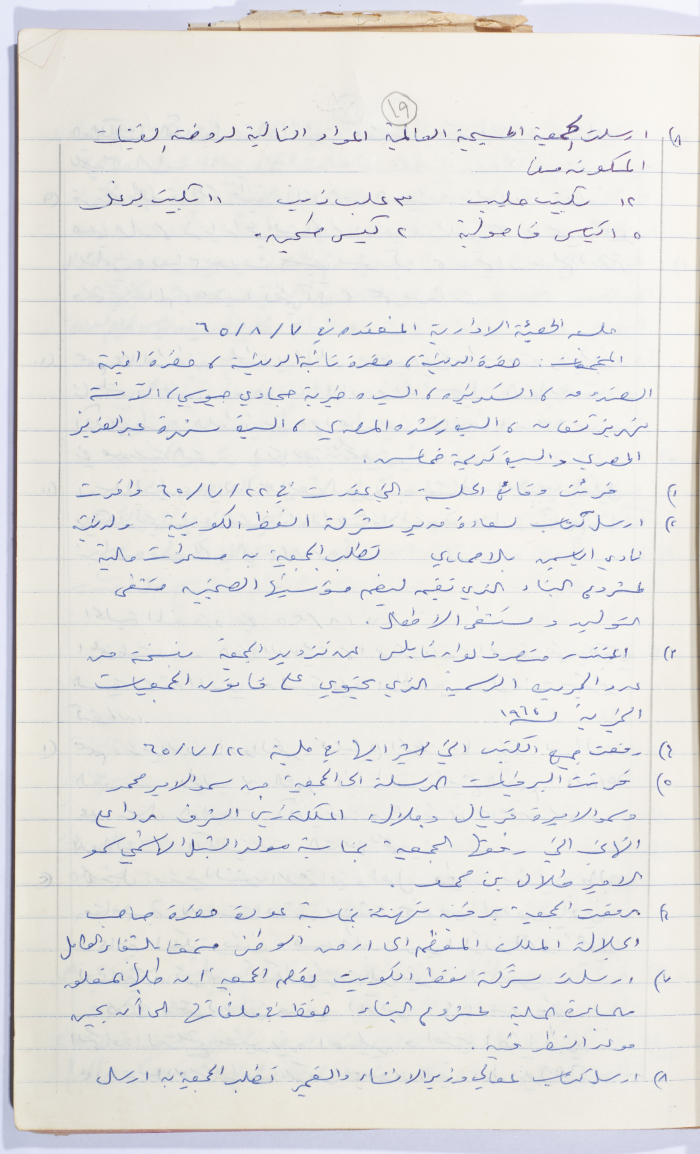 ١٩
٨) ارسلت الجمعية المسيحية العالمية المواد التالية لروضة الفتيات
المكونة من
١٢ تنكيت حليب ٣ علب زيت ١١ تنكيت برغل
٥ اكياس فاصولية ٢ كيس طحين.
جلسة الهيئة الادارية المنعقدة في ٦٥/٨/٧
المجتمعات: حضرة الرئيسة، حضرة نائبة الرئيسة، حضرة امينة
الصندوق، السكرتيرة، السيدة خيرية حجاوي، الآنسة
السيدة رشده المصري، السيدة عبد العزيز
المصري والسيدة كريمة
١) قرئت وقائع الجلسة التي عقدت في ٦٥/٧/٢٢ واقرت
٢) ارسل كتاب لسعادة مدير شركة النفط الكويتية ولرئيس
نادي الياسمين بالاحمدي تطلب الجمعية به مساعدات مالية
لمشروع البناء الذي تقيمه ليضم مؤسستيها الصحيتين مستشفى
التوليد ومستشفى الاطفال.
٣) اعتذر متصرف لواء نابلس عن تزويد الجمعية بنسخة من
عدد الجريدة الرسمية الذي يحتوي على قانون الجمعيات
الخيرية لسنة ١٩٦٤
٤) رفعت جميع الكتب التي اشير اليها في جلسة ٦٥/٧/٢٢
٥) قرئت البرقيات المرسلة الى الجمعية من سمو الامير محمد
وسمو الاميرة فريال وجلالة الملكة زين الشرف ردا على
التهاني التي رفعتها الجمعية بمناسبة مولد الشبل الهاشمي سمو
الامير طلال بن محمد.
٦) رفعت الجمعية برقية تهنئة بمناسبة عودة حضرة صاحب
الجلالة الملك المعظم الى ارض الوطن متمتعا بالشفاء الكامل
٧) ارسلت شركة نفط الكويت تعلم الجمعية ان طلبها المتعلق
بالمساعدة المالية لمشروع البناء حفظ في ملفاتها الى أن يحين
موعد النظر فيه.
٨) ارسل كتاب لمعالي وزير الانشاء والتعمير تطلب الجمعية به ارسال